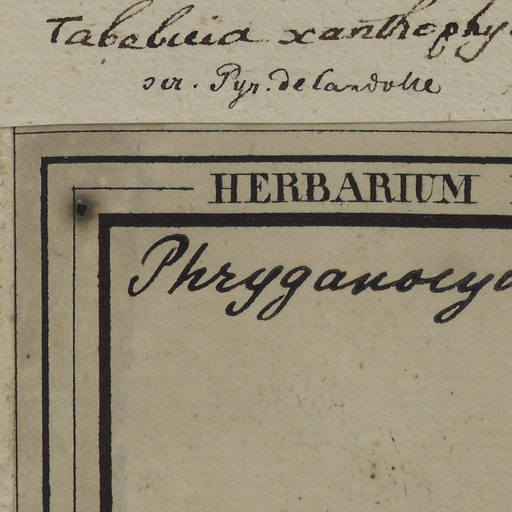 Tabebuia xanthophy
scr. Pyr. de Candolle
HERBARIUM
Phryganocyd